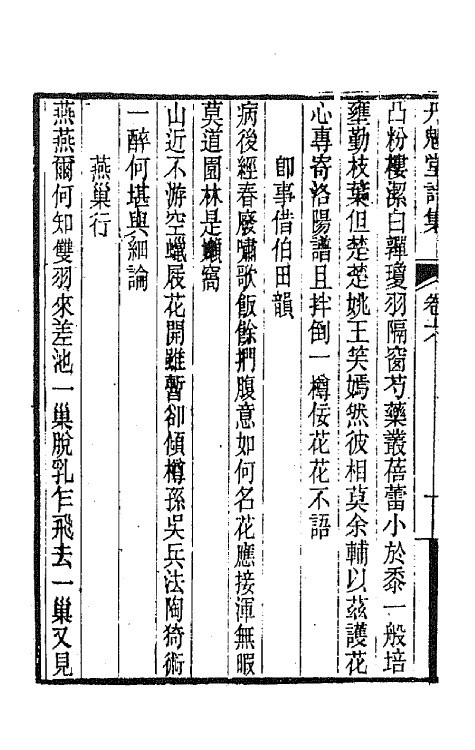 丹魁堂詩集
卷六
凸粉樓潔白嚲瓊羽隔窗芍藥叢蓓蕾小於黍一般培
壅勤枝葉但楚楚姚王笑嫣然彼相莫余輔以茲護花
心專寄洛陽譜且拌倒一樽佞花花不語
卽事借伯田韻
病後經春廢嘯歌飯餘捫腹意如何名花應接渾無暇
莫道園林是嬾窩
山近不游空蠟屐花開雖暫卻傾樽孫吳兵法陶猗術
一醉何堪與細論
燕巢行
燕燕爾何知雙羽來差池一巢脫乳乍飛去一巢又見